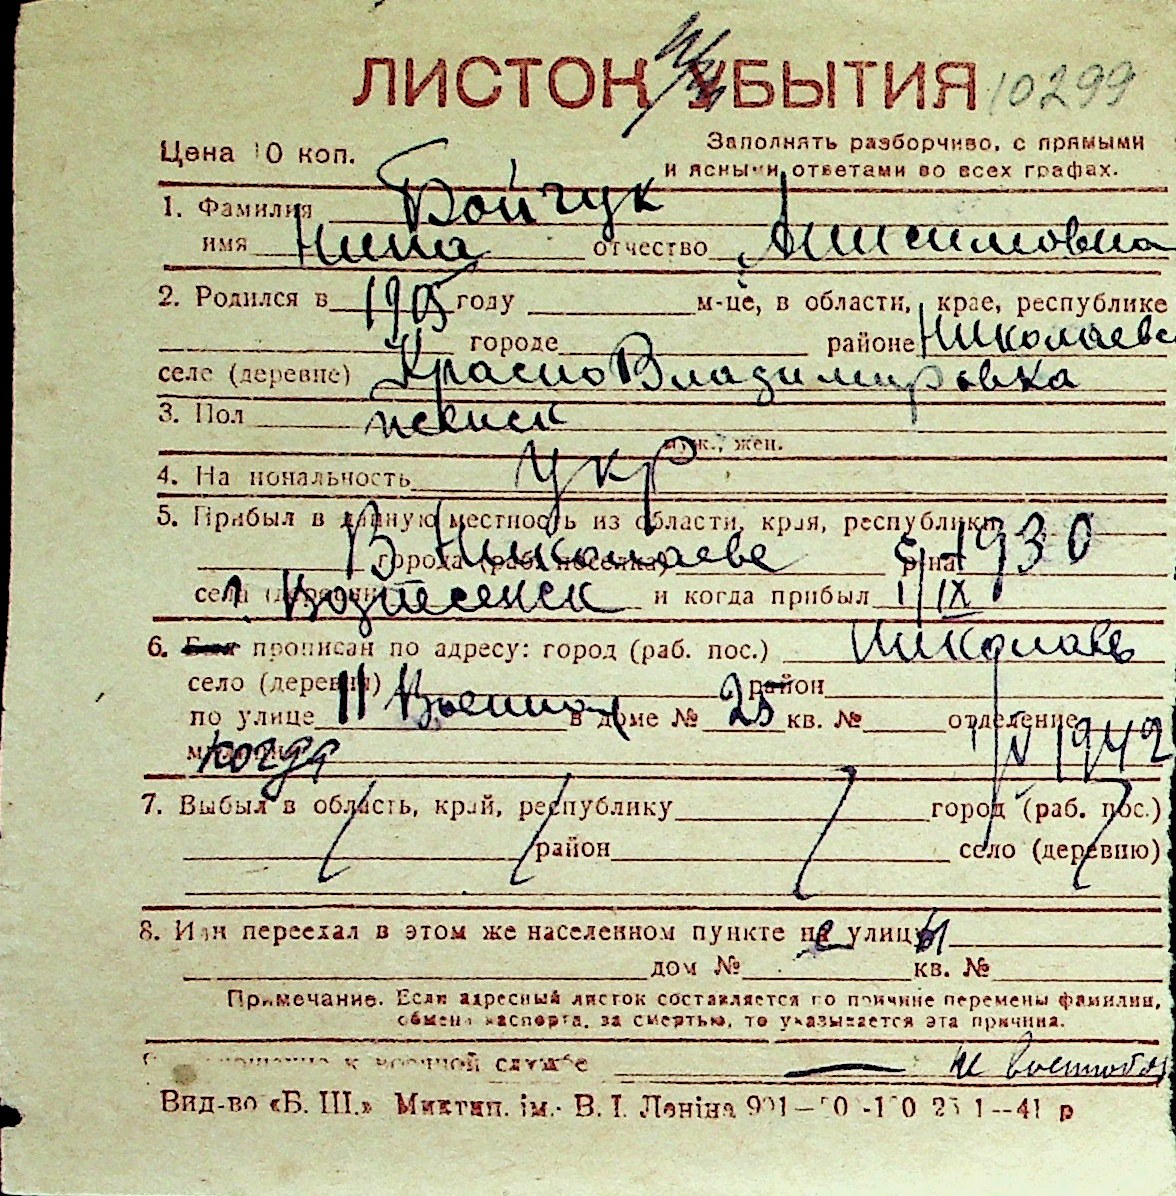 ЛИСТОК УБЫТИЯ 10299
Цена 10 коп.
Заполнять разборчиво, с прямыми
и ясными ответами во всех графах.
1. Фамилия Бойчук
имя Нина отчество Анисимовна
2. Родился в 1905 году м-це, в области, крае, республике
городе районе Николаевс
селе (деревне) Красно Владимировка
3. Пол женск
муж., жен.
4. Национальность укр
5. Прибыл в данную местность из области, края, республики
В Николаеве с 1930
города (раб. поселка) р-на
села (деревни) г. Вознесенск и когда прибыл 1/IX
6. Был прописан по адресу: город (раб. пос.) Николаев
село (деревня) район
по улице 11 Военная в доме № 25 кв. № отделение
когда 1/V 1942
7. Выбыл в область, край, республику город (раб. пос.)
район село (деревню)
8. Или переехал в этом же населенном пункте не улицы
дом № кв. №
Примечание. Если адресный листок составляется по причине перемены фамилии,
обмена паспорта, за смертью, то указывается эта причина.
отношение к военной службе не военнооб
Вид-во «Б. Ш.» Миктип. ім. В. І. Леніна